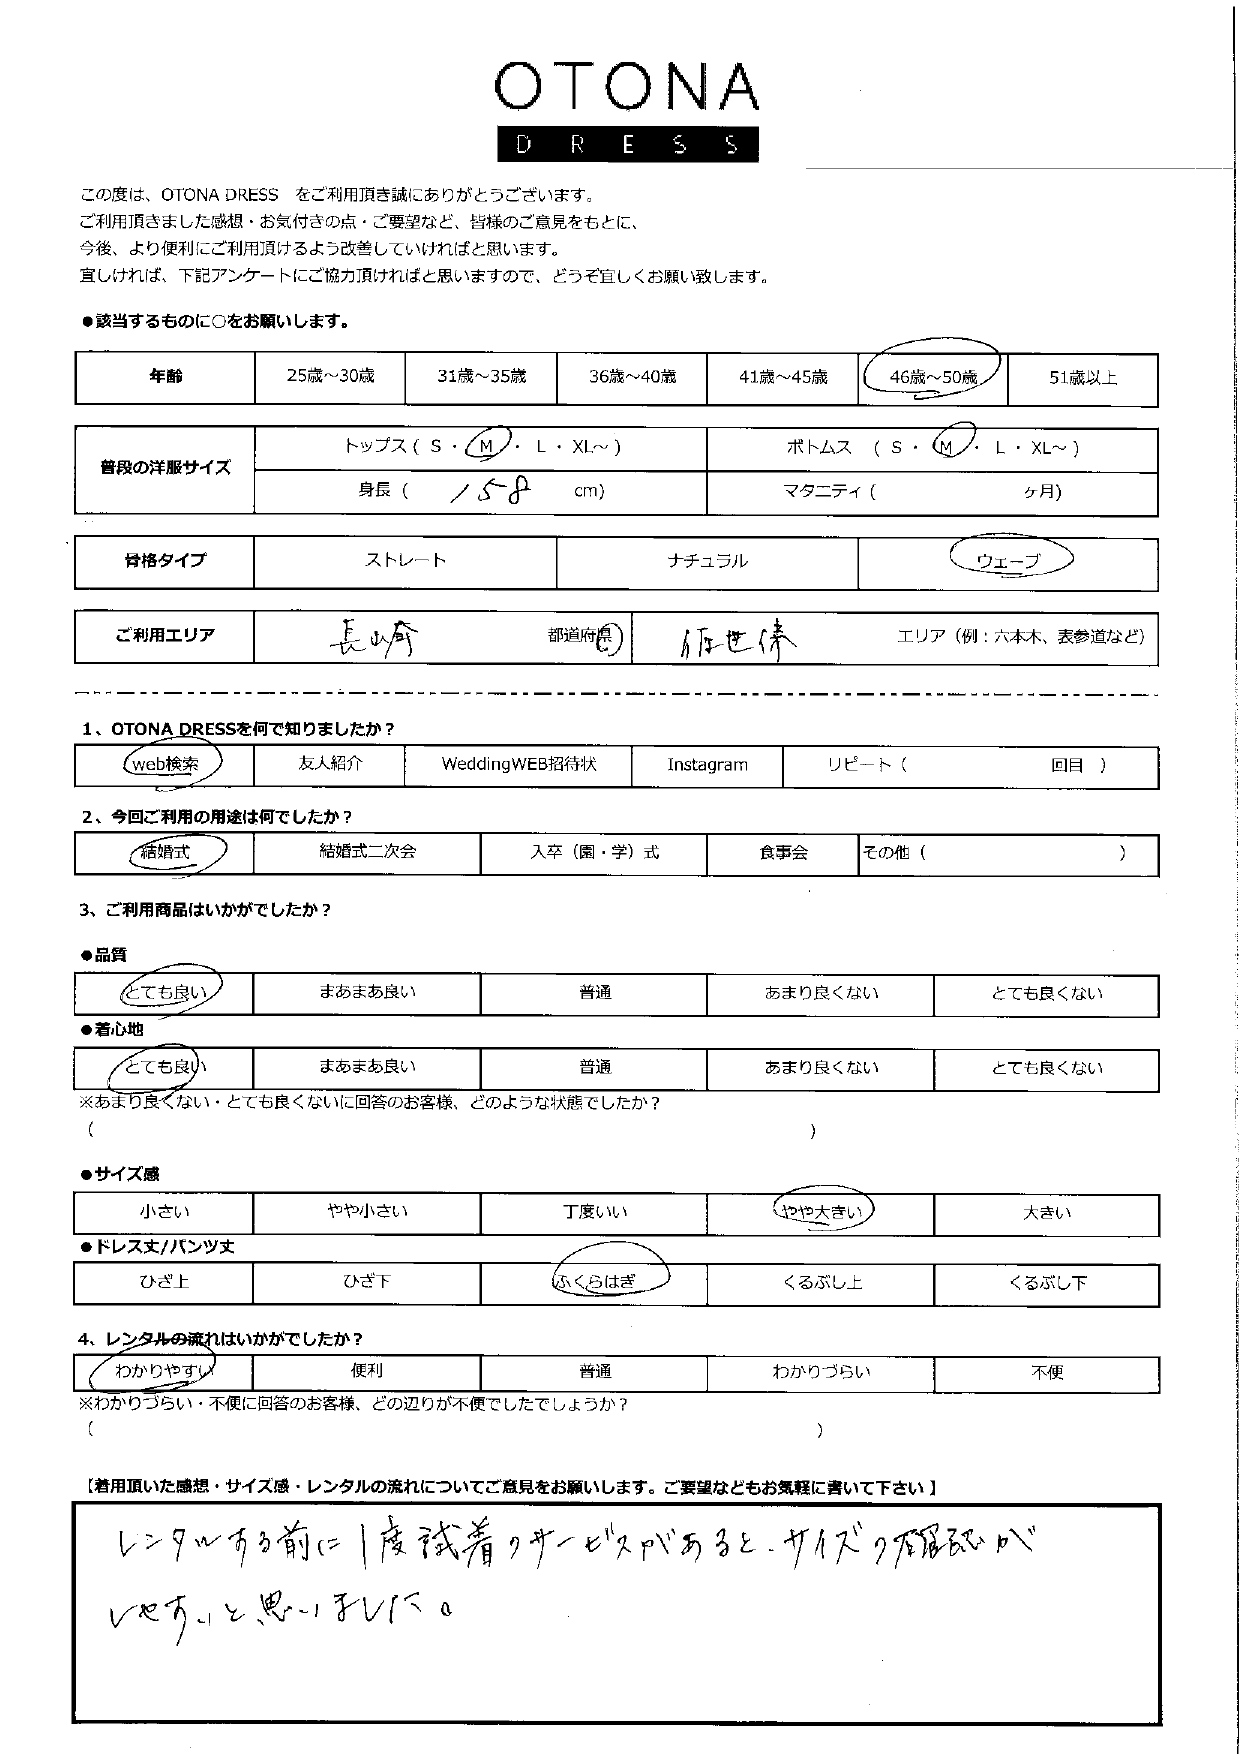 OTONA
DRESS
この度は、OTONA DRESS　をご利用頂き誠にありがとうございます。
ご利用頂きました感想・お気付きの点・ご要望など、皆様のご意見をもとに、
今後、より便利にご利用頂けるよう改善していければと思います。
宜しければ、下記アンケートにご協力頂ければと思いますので、どうぞ宜しくお願い致します。
●該当するものに○をお願いします。
年齢 25歳～30歳 31歳～35歳 36歳～40歳 41歳～45歳 46歳～50歳 51歳以上
普段の洋服サイズ トップス ( S ・ M ・ L ・ XL～ ) ボトムス ( S ・ M ・ L ・ XL～ )
身長 ( 158 cm) マタニティ ( ヶ月)
骨格タイプ ストレート ナチュラル ウェーブ
ご利用エリア 長崎 都道府県 佐世保 エリア（例：六本木、表参道など）
1、OTONA DRESSを何で知りましたか？
web検索 友人紹介 WeddingWEB招待状 Instagram リピート（ 回目 ）
2、今回ご利用の用途は何でしたか？
結婚式 結婚式二次会 入卒（園・学）式 食事会 その他（ ）
3、ご利用商品はいかがでしたか？
●品質
とても良い まあまあ良い 普通 あまり良くない とても良くない
●着心地
とても良い まあまあ良い 普通 あまり良くない とても良くない
※あまり良くない・とても良くないに回答のお客様、どのような状態でしたか？
( )
●サイズ感
小さい やや小さい 丁度いい やや大きい 大きい
●ドレス丈/パンツ丈
ひざ上 ひざ下 ふくらはぎ くるぶし上 くるぶし下
4、レンタルの流れはいかがでしたか？
わかりやすい 便利 普通 わかりづらい 不便
※わかりづらい・不便に回答のお客様、どの辺りが不便でしたでしょうか？
( )
【着用頂いた感想・サイズ感・レンタルの流れについてご意見をお願いします。ご要望などもお気軽に書いて下さい】
レンタルする前に1度試着のサービスがあると、サイズの確認が
しやすいと思いました。